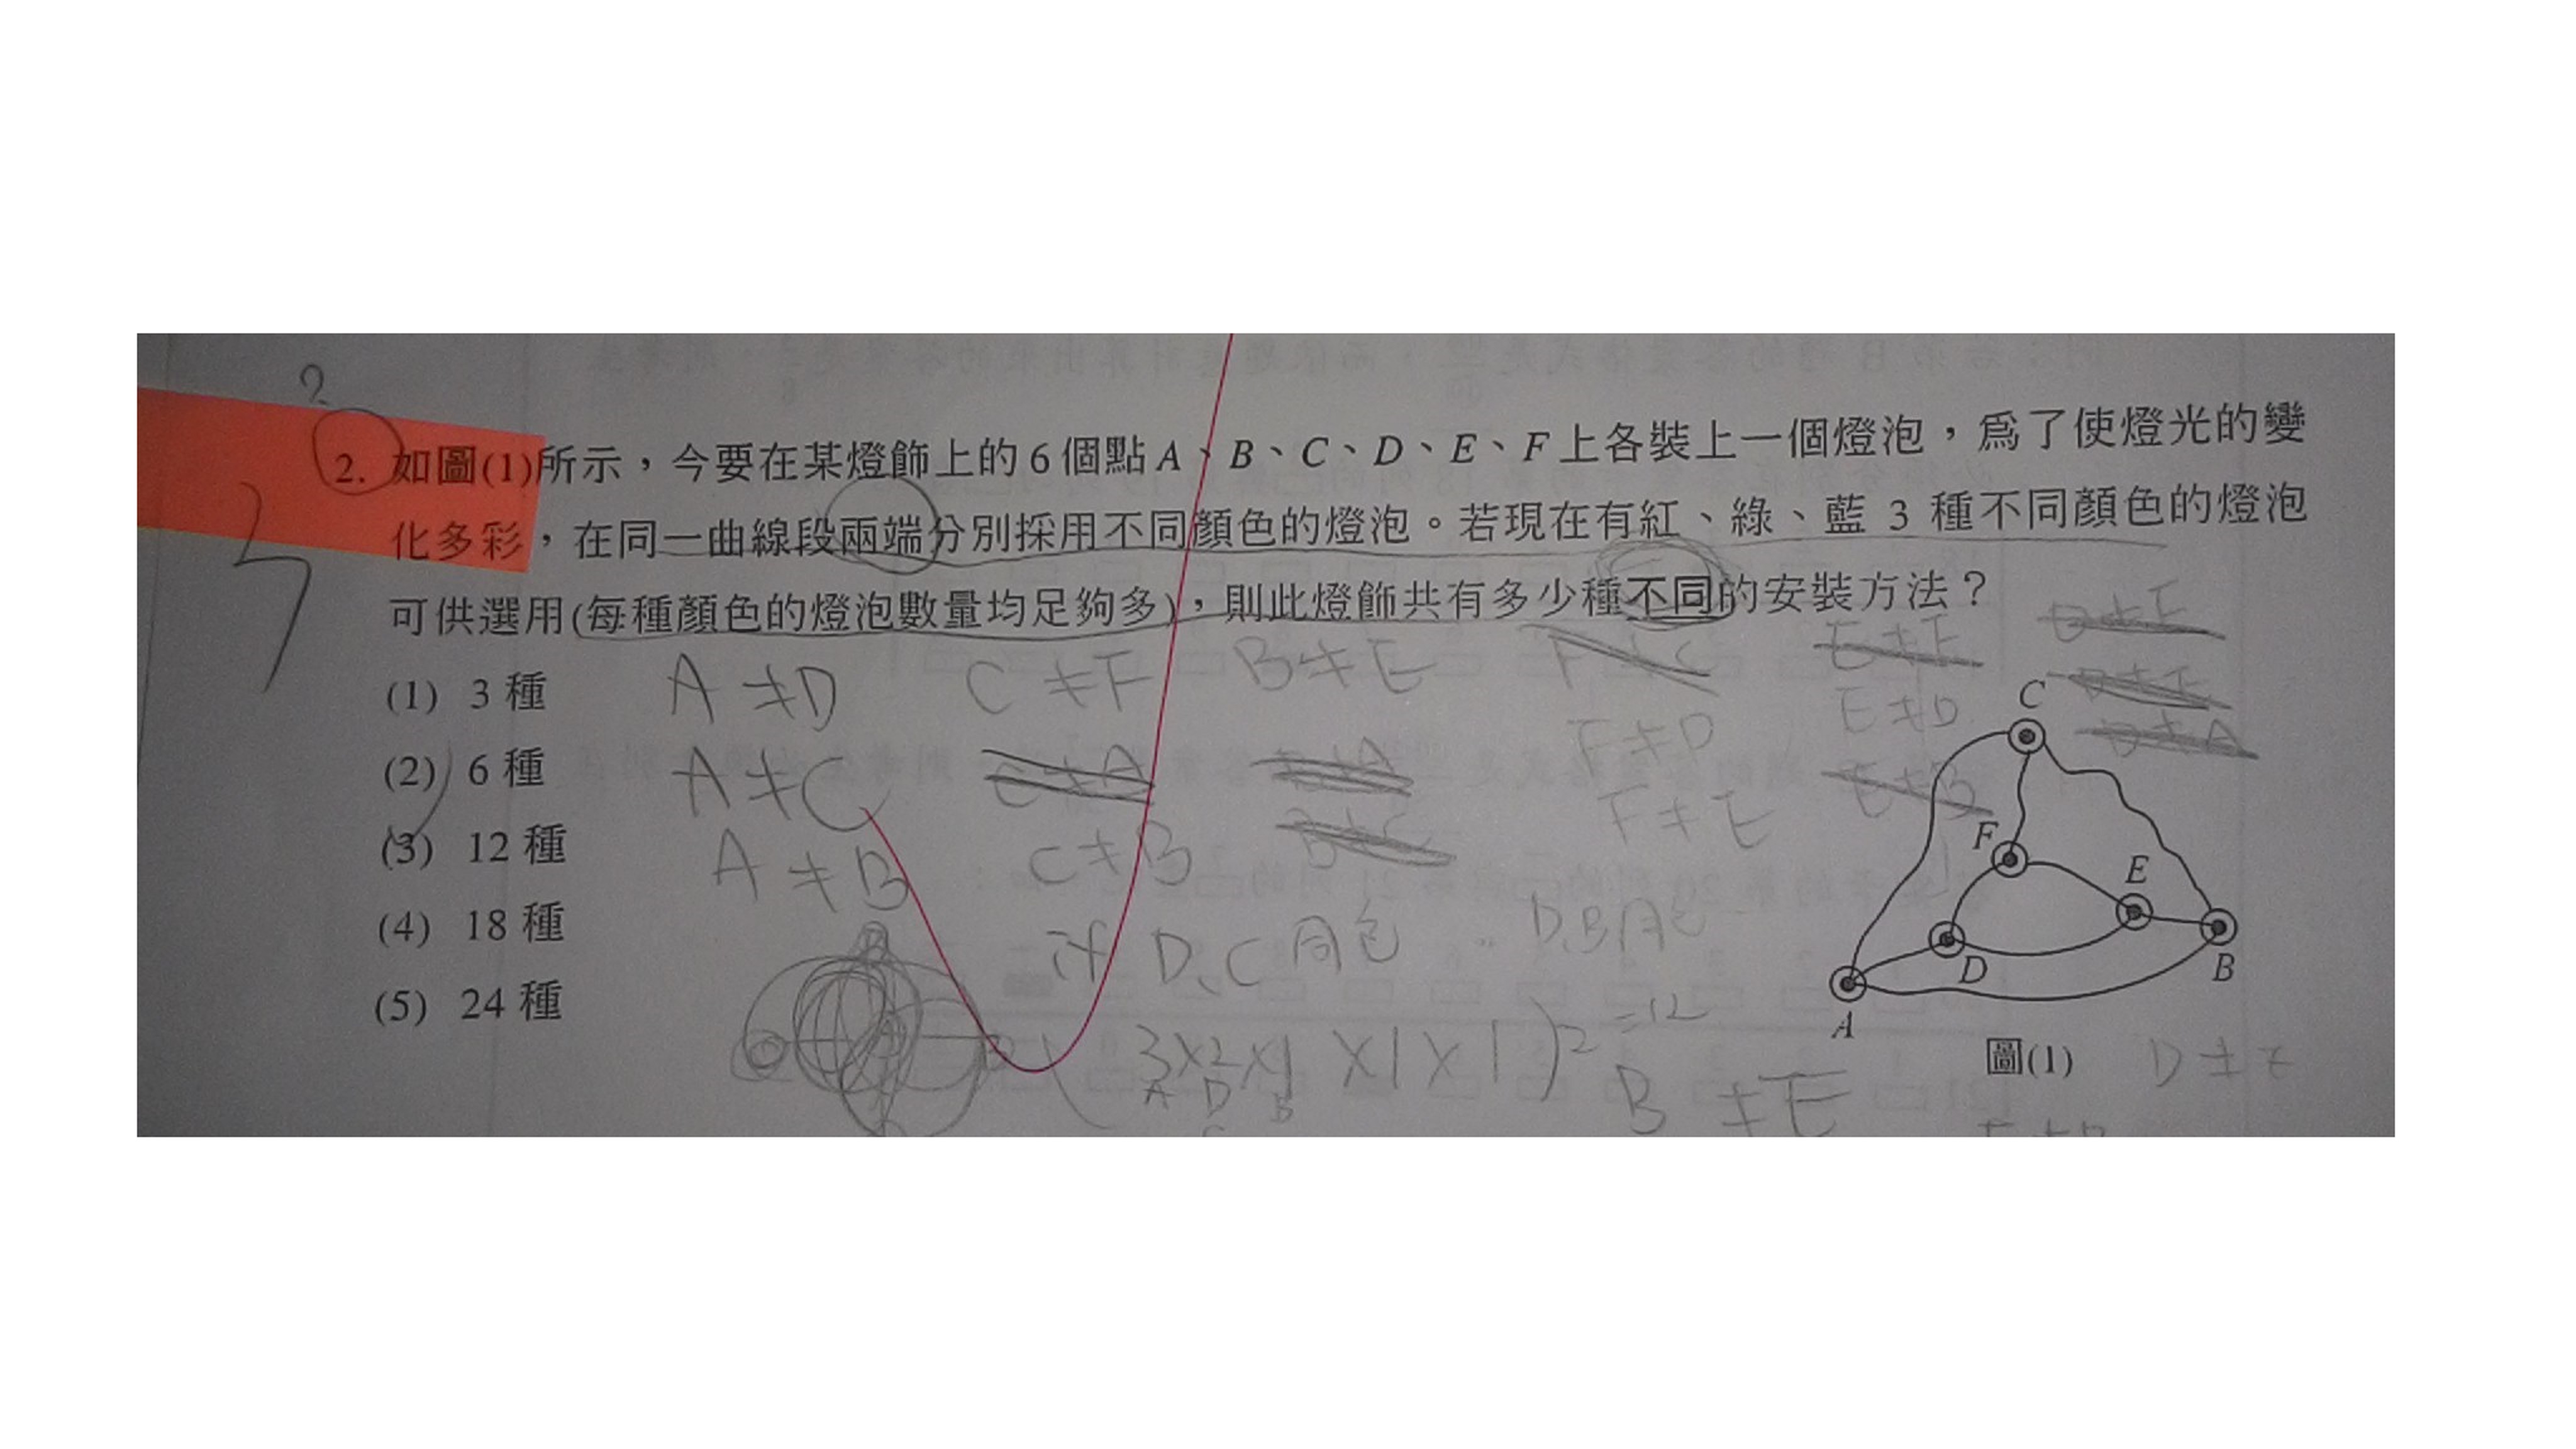 ?
2. 如圖(1)所示，今要在某燈飾上的6個點A、B、C、D、E、F上各裝上一個燈泡，爲了使燈光的變
化多彩，在同一曲線段兩端分別採用不同顏色的燈泡。若現在有紅、綠、藍 3 種不同顏色的燈泡
可供選用(每種顏色的燈泡數量均足夠多)，則此燈飾共有多少種不同的安裝方法？
(1) 3 種
(2) 6 種
(3) 12 種
(4) 18 種
(5) 24 種
A ≠ D C ≠ F B ≠ E
A ≠ C F ≠ D E ≠ D
A ≠ B C ≠ B F ≠ E
if D、C 同色 D、B 同色
(3×2×1×1×1)2 =12
A D B
C
B ≠ E
D ≠ E
C
F
E
D
B
A
圖(1)